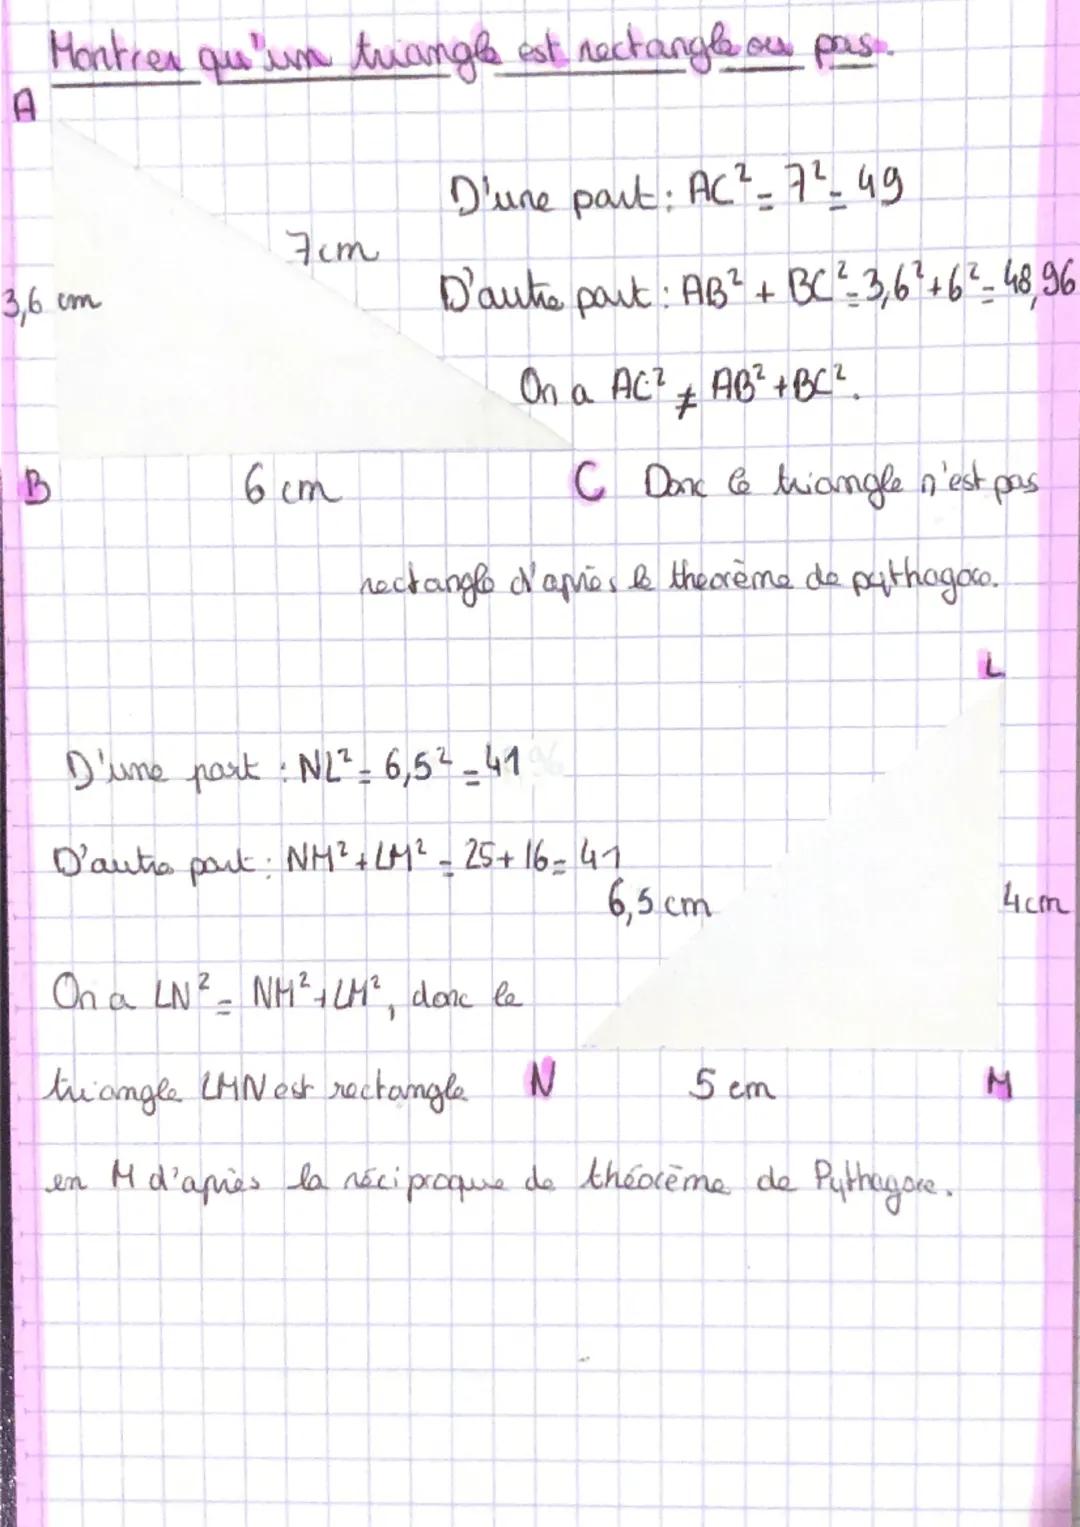 Montrer qu'un triangle est rectangle ou pas.
A
D'une part : AC² = 7² = 49
7cm
3,6 cm
D'autre part : AB² + BC² = 3,6² + 6² = 48,96
On a AC² ≠ AB² + BC².
B
6 cm
C
Donc le triangle n'est pas
rectangle d'après le theorème de pythagore.
L
D'une part : NL² = 6,5² = 41
D'autre part : NM² + LM² = 25 + 16 = 41
6,5 cm
4cm
On a LN² = NM² + LM², donc le
triangle LMN est rectangle
N
5 cm
M
en M d'après la réciproque de théorème de Pythagore.